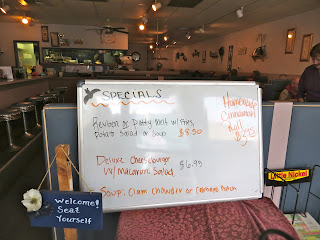 SPECIALS
Reuben or Patty Melt w/ Fries,
Potato Salad or Soup $8.50
Homemade
Cinnamon
Roll
Deluxe Cheeseburger $6.95
w/ Macaroni Salad
Soup: Clam Chowder or
Welcome!
Seat
Yourself
Little Nickel